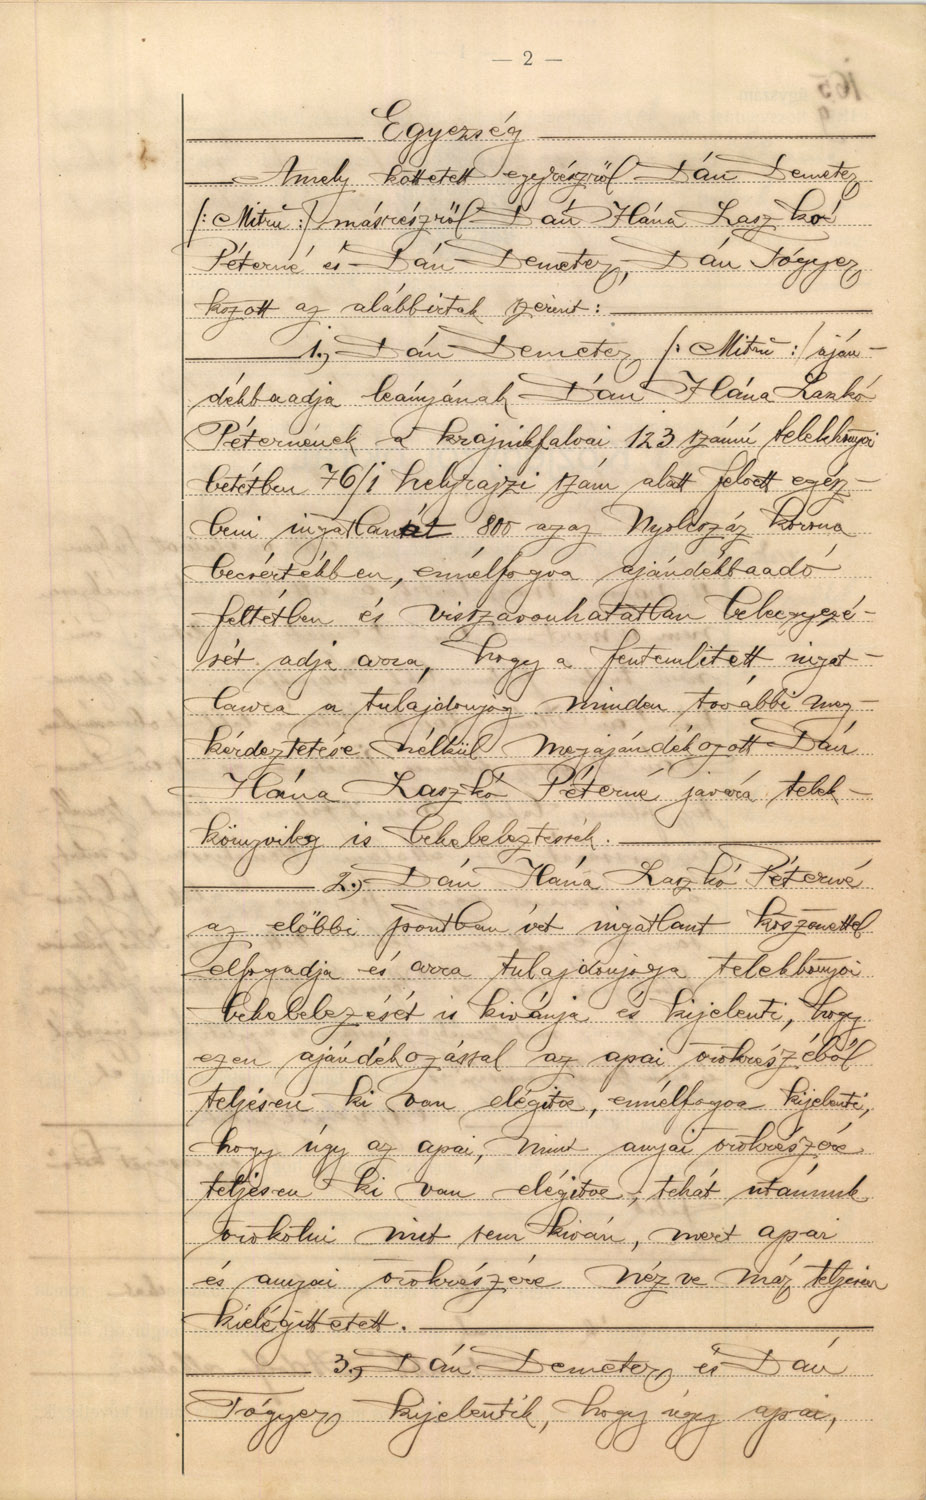 — 2 —
Egyezség
Amely köttetett egyrészről Dán Demeter
/: Mitru :/ másrészről Dán Hána Laszkó
Péterné és Dán Demeter, Dán Tógyer
között az alábbirtak szerint:
1., Dán Demeter /: Mitru :/ aján-
dékbaadja leányának Dán Hána Laszkó
Péternének a krajnikfalvai 123 számú telekkönyvi
betétben 76/1 helyrajzi szám alatt felvett egész-
beni ingatlanát 800 azaz Nyolcszáz korona
becsértékben, ennélfogva ajándékbaadó
feltétlen és visszavonhatatlan beleegyezé-
sét adja arra, hogy a fentemlitett ingat-
lanra a tulajdonjog minden további meg-
kérdeztetése nélkül megajándékozott Dán
Hána Laszkó Péterné javára telek-
könyvileg is bekebeleztessék.
2., Dán Hána Laszkó Péterné
az előbbi pontban irt ingatlant köszönettel
elfogadja és arra tulajdonjoga telekkönyvi
bekebelezését is kivánja és kijelenti, hogy
ezen ajándékozással az apai örökrészéből
teljesen ki van elégitve, ennélfogva kijelenti,
hogy úgy az apai, mint anyai örökrészére
teljesen ki van elégitve, tehát utánnuk
örökölni mit sem kiván, mert apai
és anyai örökrészére nézve már teljesen
kielégittetett.
3., Dán Demeter és Dán
Tógyer kijelentik, hogy úgy apai,